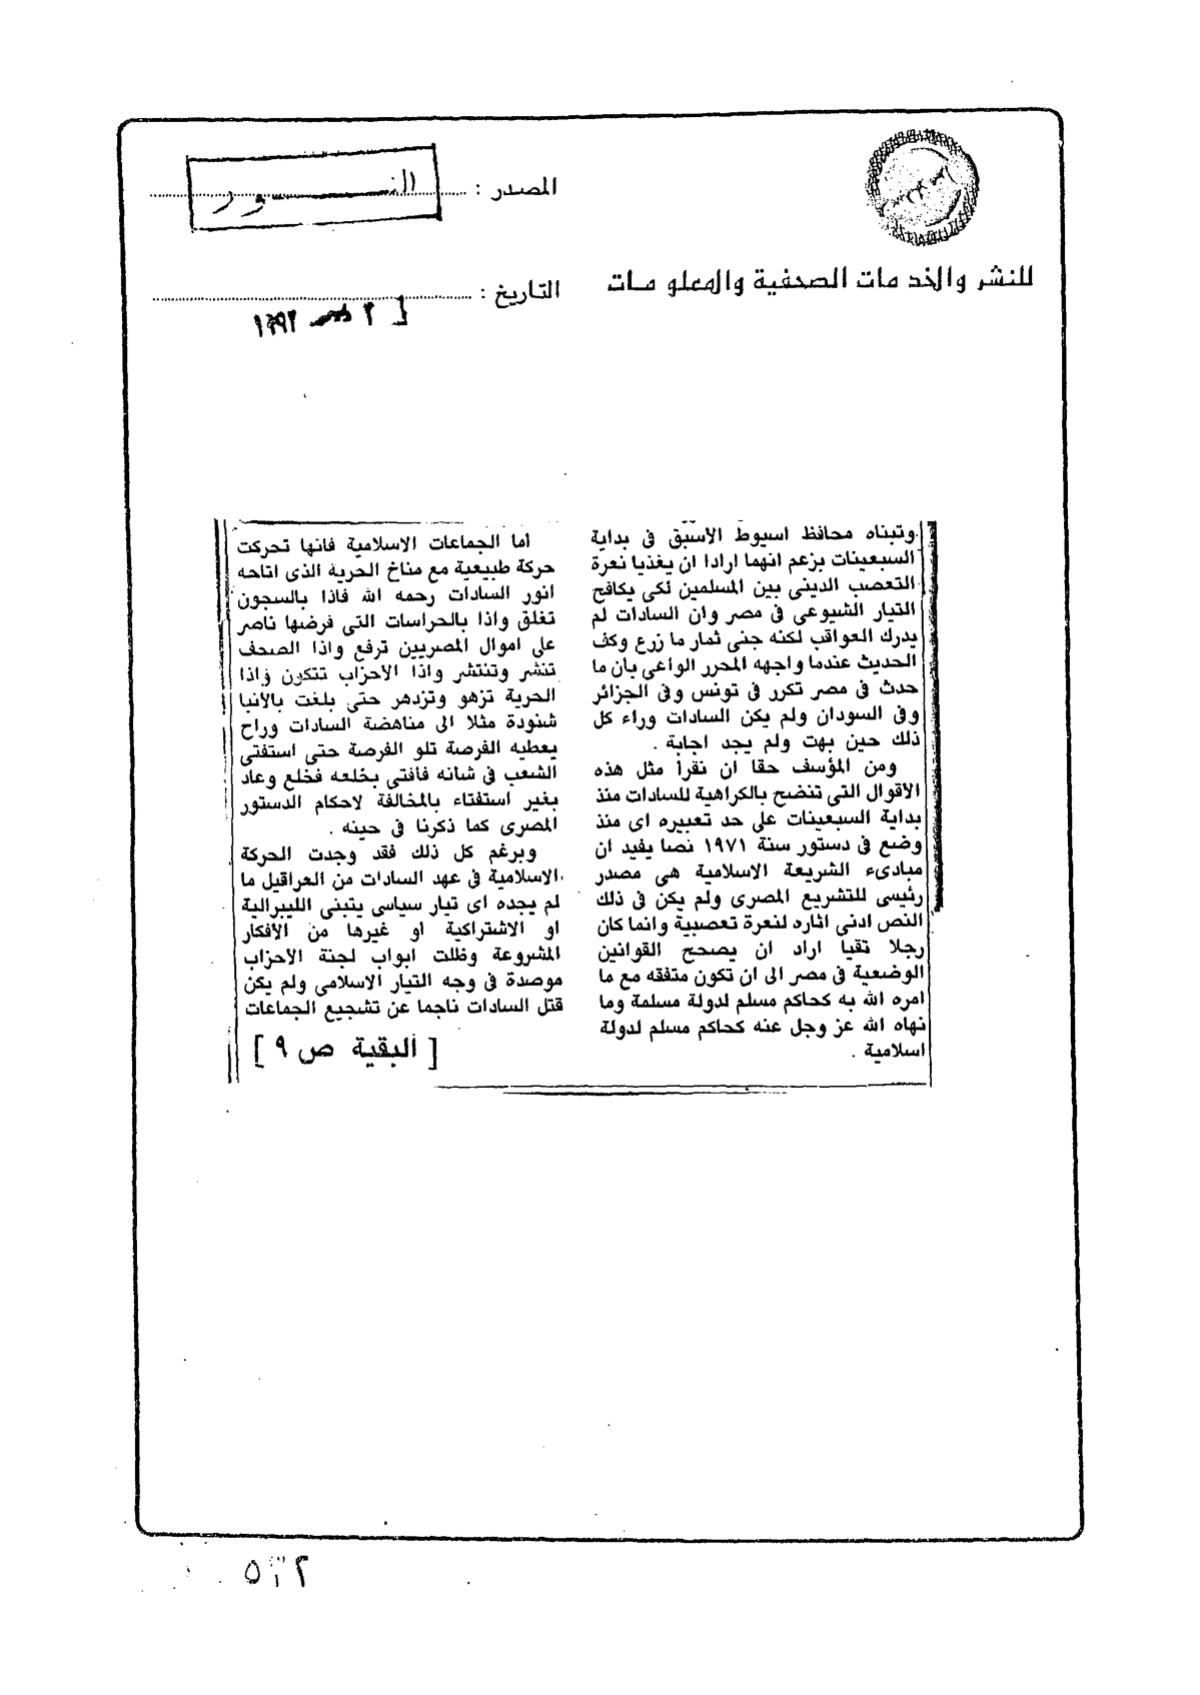 المصدر :
النـــور
للنشر والخدمات الصحفية والمعلومات
التاريخ :
١٩٩٢
وتبناه محافظ اسيوط الاسبق فى بداية
السبعينات بزعم انهما ارادا ان يغذيا نعرة
التعصب الدينى بين المسلمين لكى يكافح
التيار الشيوعى فى مصر وان السادات لم
يدرك العواقب لكنه جنى ثمار ما زرع وكف
الحديث عندما واجهه المحرر الواعى بان ما
حدث فى مصر تكرر فى تونس وفى الجزائر
وفى السودان ولم يكن السادات وراء كل
ذلك حين بهت ولم يجد اجابة .
ومن المؤسف حقا ان نقرأ مثل هذه
الاقوال التى تنضح بالكراهية للسادات منذ
بداية السبعينات على حد تعبيره اى منذ
وضع فى دستور سنة ١٩٧١ نصا يفيد ان
مبادىء الشريعة الاسلامية هى مصدر
رئيسى للتشريع المصرى ولم يكن فى ذلك
النص ادنى اثاره لنعرة تعصبية وانما كان
رجلا تقيا اراد ان يصحح القوانين
الوضعية فى مصر الى ان تكون متفقه مع ما
امره الله به كحاكم مسلم لدولة مسلمة وما
نهاه الله عز وجل عنه كحاكم مسلم لدولة
اسلامية .
أما الجماعات الاسلامية فانها تحركت
حركة طبيعية مع مناخ الحرية الذى اتاحه
انور السادات رحمه الله فاذا بالسجون
تغلق واذا بالحراسات التى فرضها ناصر
على اموال المصريين ترفع واذا الصحف
تنشر وتنتشر واذا الأحزاب تتكون واذا
الحرية تزهو وتزدهر حتى بلغت بالانبا
شنودة مثلا الى مناهضة السادات وراح
يعطيه الفرصة تلو الفرصة حتى استفتى
الشعب فى شانه فافتى بخلعه فخلع وعاد
بغير استفتاء بالمخالفة لاحكام الدستور
المصرى كما ذكرنا فى حينه .
وبرغم كل ذلك فقد وجدت الحركة
الاسلامية فى عهد السادات من العراقيل ما
لم يجده اى تيار سياسى يتبنى الليبرالية
او الاشتراكية او غيرها من الأفكار
المشروعة وظلت ابواب لجنة الاحزاب
موصدة فى وجه التيار الاسلامى ولم يكن
قتل السادات ناجما عن تشجيع الجماعات
[ البقية ص ٩ ]